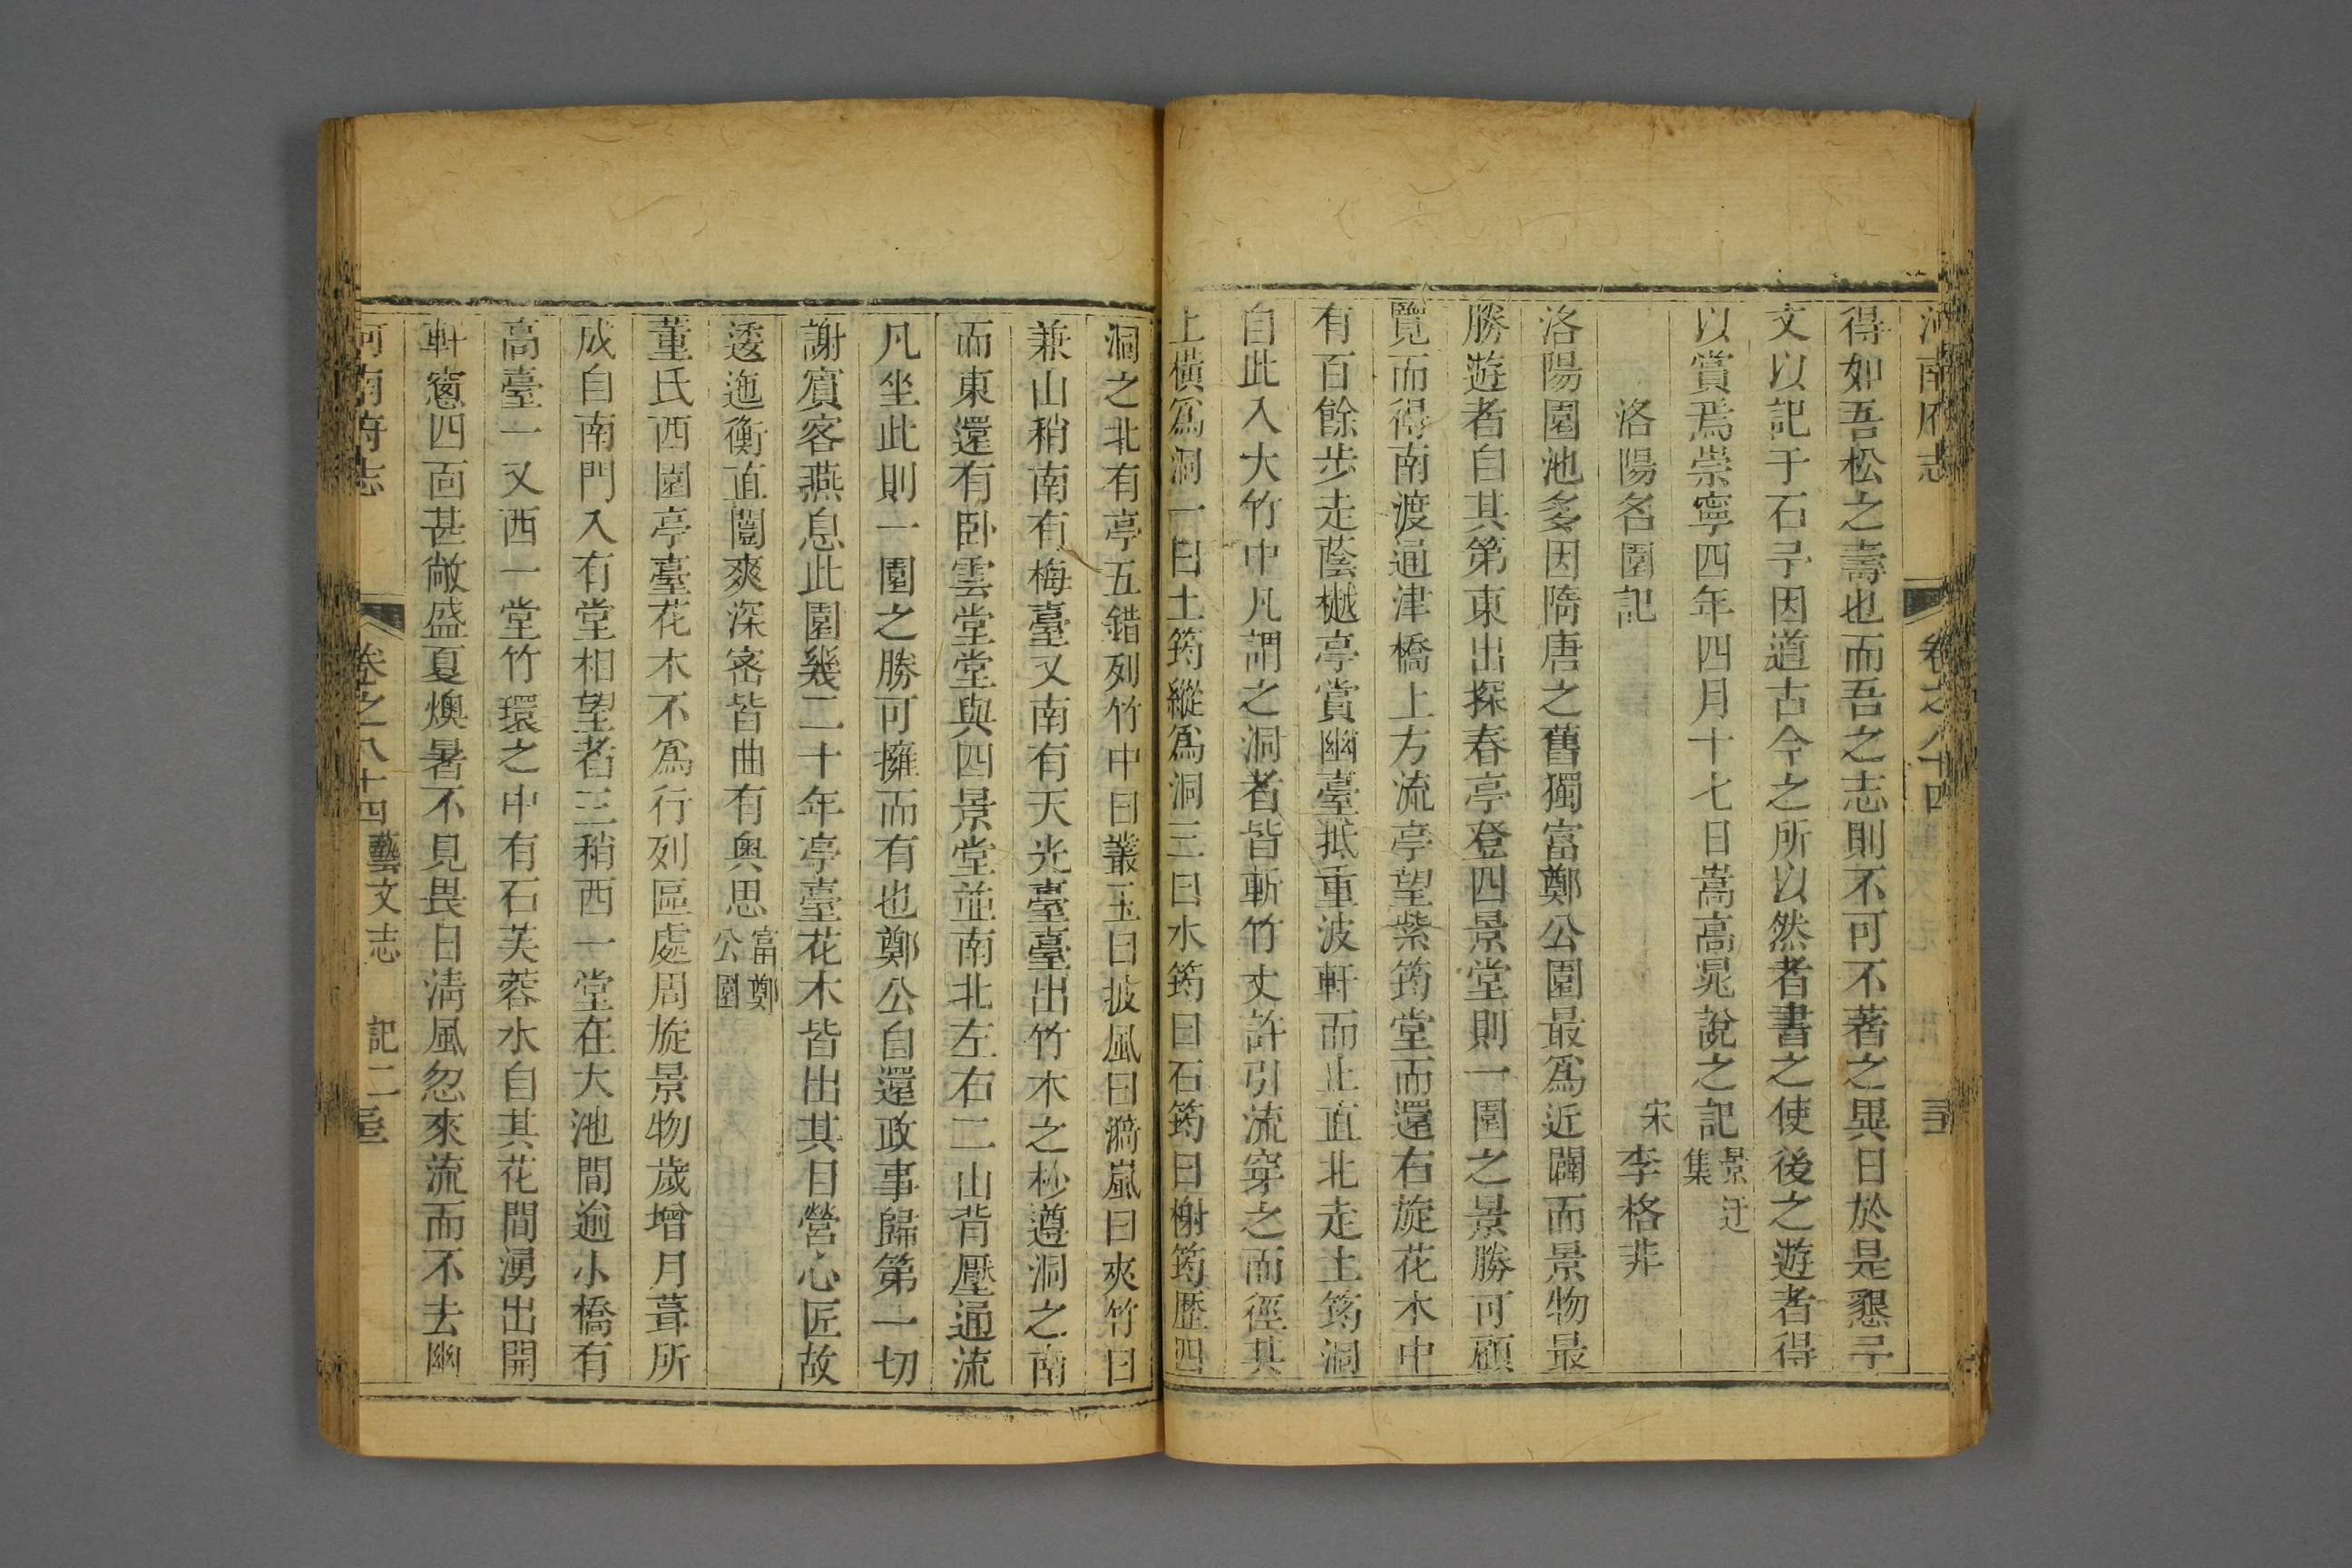 河南府志 卷之八十四
得如吾松之壽也而吾之志則不可不著之異日於是懇予
文以記于石予因道古今之所以然者書之使後之遊者得
以賞焉崇寧四年四月十七日嵩高晁說之記景迂集
洛陽名園記 宋李格非
洛陽園池多因隋唐之舊獨富鄭公園最爲近闢而景物最
勝遊者自其第東出探春亭登四景堂則一園之景勝可顧
覽而得南渡通津橋上方流亭望紫筠堂而還右旋花木中
有百餘步走蔭樾亭賞幽臺抵重波軒而止直北走土筠洞
自此入大竹中凡謂之洞者皆斬竹丈許引流穿之而徑其
上橫爲洞一曰土筠縱爲洞三曰水筠曰石筠曰榭筠歷四
洞之北有亭五錯列竹中曰叢玉曰披風曰漪嵐曰夾竹曰
兼山稍南有梅臺又南有天光臺臺出竹木之杪遵洞之南
而東還有臥雲堂堂與四景堂並南北左右二山背壓通流
凡坐此則一園之勝可擁而有也鄭公自還政事歸第一切
謝賓客燕息此園幾二十年亭臺花木皆出其目營心匠故
逶迤衡直闓爽深密皆曲有奧思富鄭公園
董氏西園亭臺花木不爲行列區處周旋景物歲增月葺所
成自南門入有堂相望者三稍西一堂在大池間逾小橋有
高臺一又西一堂竹環之中有石芙蓉水自其花間湧出開
軒窻四面甚敞盛夏燠暑不見畏日淸風忽來流而不去幽
河南府志 卷之八十四藝文志 記二